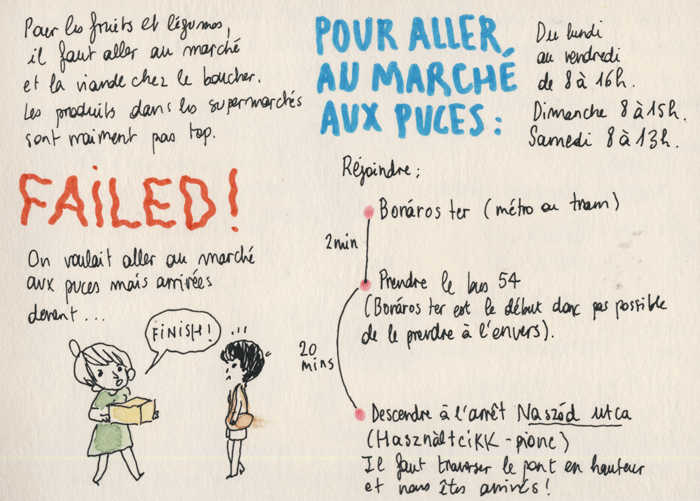 Pour les fruits et légumes,
il faut aller au marché
et la viande chez le boucher.
Les produits dans les supermarchés
sont vraiment pas top.
FAILED!
On voulait aller au marché
aux puces mais arrivées
devant...
FINISH!
...
POUR ALLER
AU MARCHÉ
AUX PUCES:
Du lundi
au vendredi
de 8 à 16h.
Dimanche 8 à 15h.
Samedi 8 à 13h.
Réjoindre:
Boráros ter (métro ou tram)
2min
Prendre le bus 54
(Boráros ter est le début donc pas possible
de le prendre à l'envers).
20
mins
Descendre à l'arrêt Naszód utca
(Használtcikk-piänc)
Il faut traverser le pont en hauteur
et vous êtes arrivés!